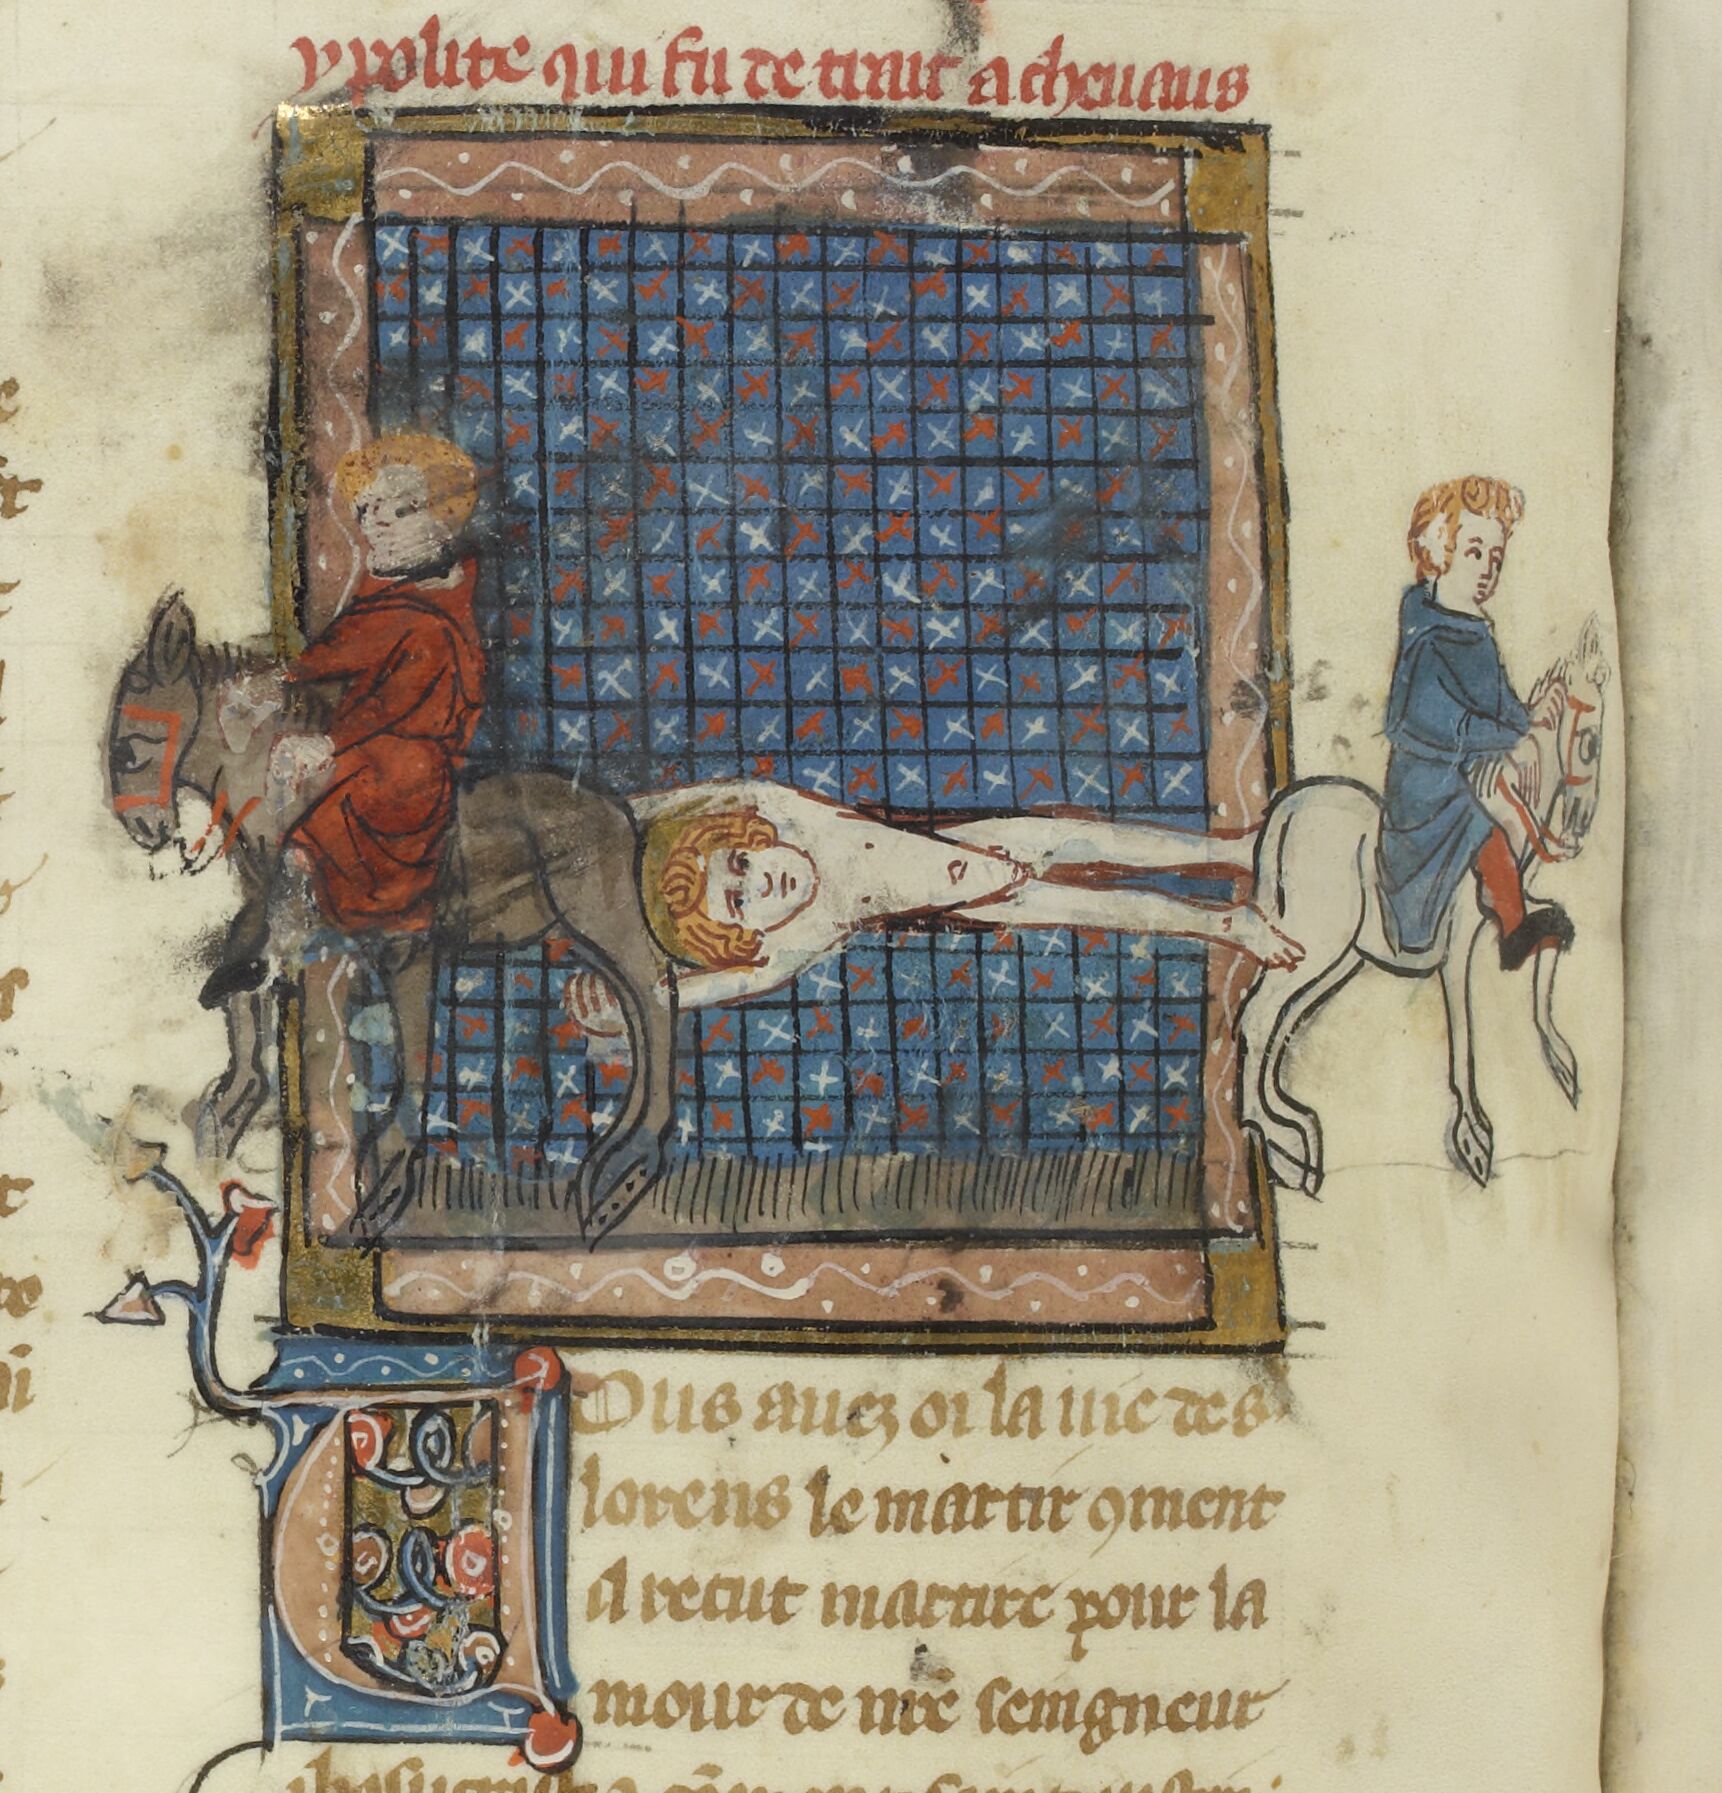 ypolite qui fu de trait a cheuaus
Ous auez oi la uie des
lorens le martir ꝯment
il recut martire pour la
mour de nr̄e seingneur